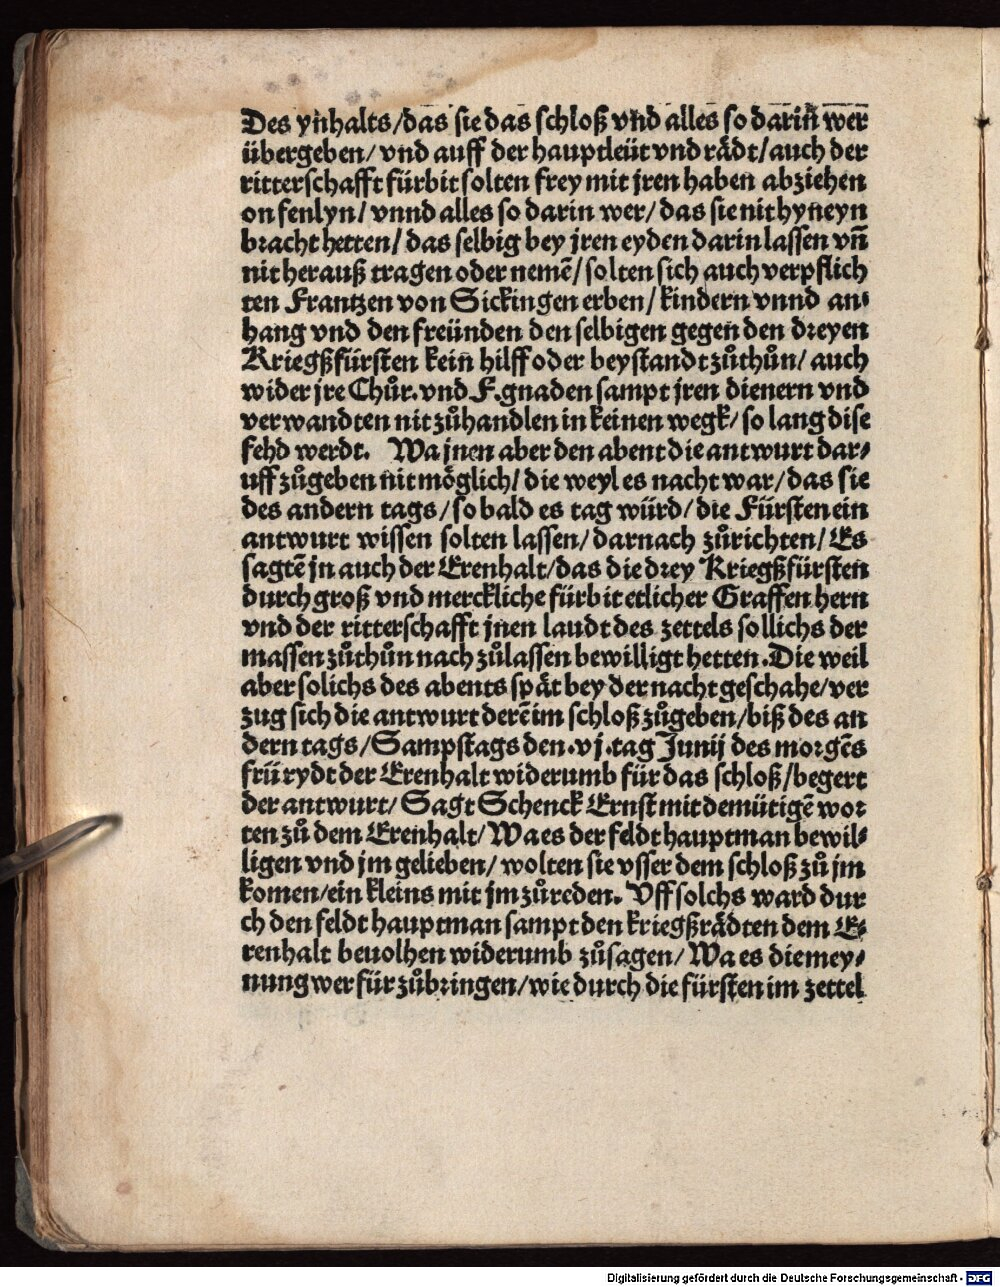 Des yñhalts/das sie das schloß vñd alles so darin̄ wer
übergeben/ vnd auff der hauptleüt vnd rådt/auch der
ritterschafft fürbit solten frey mit jren haben abziehen
on fenlyn/ vnnd alles so darin wer/ das sie nit hyneyn
bracht hetten/ das selbig bey jren eyden darin lassen vn̄
nit herauß tragen oder nemē/ solten sich auch verpflich
ten Frantzen von Sickingen erben/ kindern vnnd an⸗
hang vnd den freünden den selbigen gegen den dreyen
Kriegßfürsten kein̄ hilff oder beystandt zůthůn/ auch
wider jre Chůr. vnd F. gnaden sampt jren dienern vnd
verwandten nit zůhandlen in keinen wegk/ so lang dise
fehd werdt. Wa jnen aber den abent die antwurt dar⸗
uff zůgeben nit möglich/ die weyl es nacht war/ das sie
des andern tags/ so bald es tag würd/ die Fürsten ein
antwurt wissen solten lassen/ darnach zůrichten/ Es
sagtē jn auch der Erenhalt/das die drey Kriegßfürsten
durch groß vnd merckliche fürbit etlicher Graffen hern
vnd der ritterschafft jnen laudt des zettels sollichs der
massen zůthůn nach zůlassen bewilligt hetten. Die weil
aber solichs des abents spåt bey der nacht geschahe/ ver
zug sich die antwurt derē im schloß zůgeben/ biß des an
dern tags/ Sampstags den .vj. tag Junij des morgēs
frü rydt der Erenhalt widerumb für das schloß/ begert
der antwurt/ Sagt Schenck Ernst mit demütigē wor
ten zů dem Erenhalt/ Wa es der feldthauptman bewil⸗
ligen vnd jm gelieben/ wolten sie vsser dem schloß zů jm
komen/ ein kleins mit jm zůreden. Vff solchs ward dur
ch den feldthauptman sampt den kriegßrådten dem E⸗
renhalt beuolhen widerumb zůsagen/ Wa es die mey⸗
nung wer für zůbringen/ wie durch die fürsten im zettel
Digitalisierung gefördert durch die Deutsche Forschungsgemeinschaft - DFG